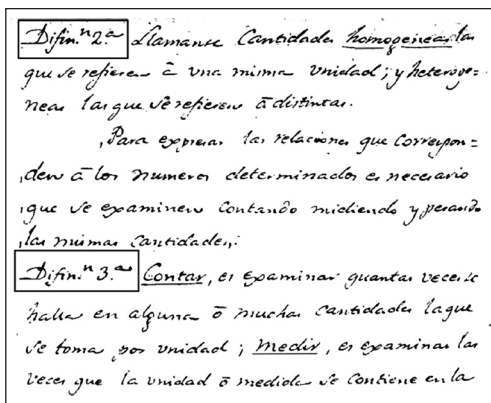 Difin.ⁿ 2.ª Llamanse Cantidades homogeneas las
que se refieren â una misma unidad; y heteroge=
neas las que se refieren â distintas.
Para expresar las relaciones que correspon=
den â los numeros determinados es necesario
que se examinen Contando midiendo y pesando
las mismas cantidades;
Difin.ⁿ 3.ª Contar, es examinar quantas veces se
halla en alguna ô muchas cantidades la que
se toma por unidad; Medir, es examinar las
veces que la unidad ô medida se contiene en la